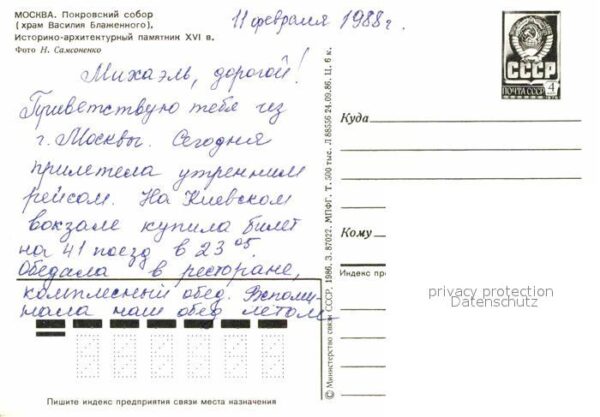 МОСКВА. Покровский собор
(храм Василия Блаженного),
Историко-архитектурный памятник XVI в.
Фото Н. Самсоненко
11 февраля 1988 г.
Михаэль, дорогой!
Приветствую тебя из
г. Москвы. Сегодня
прилетела утренним
рейсом. На Киевском
вокзале купила билет
на 41 поезд в 23 05.
Обедала в ресторане,
комплесный обед. Вспоми-
нала наш обед летом
Пишите индекс предприятия связи места назначения
© Министерство связи СССР, 1986. З. 87022. МПФГ. Т. 500 тыс. Л 88556 24.09.86. Ц. 6 к.
СССР
ПОЧТА СССР 4
Куда
Кому
Индекс
privacy protection
Datenschutz